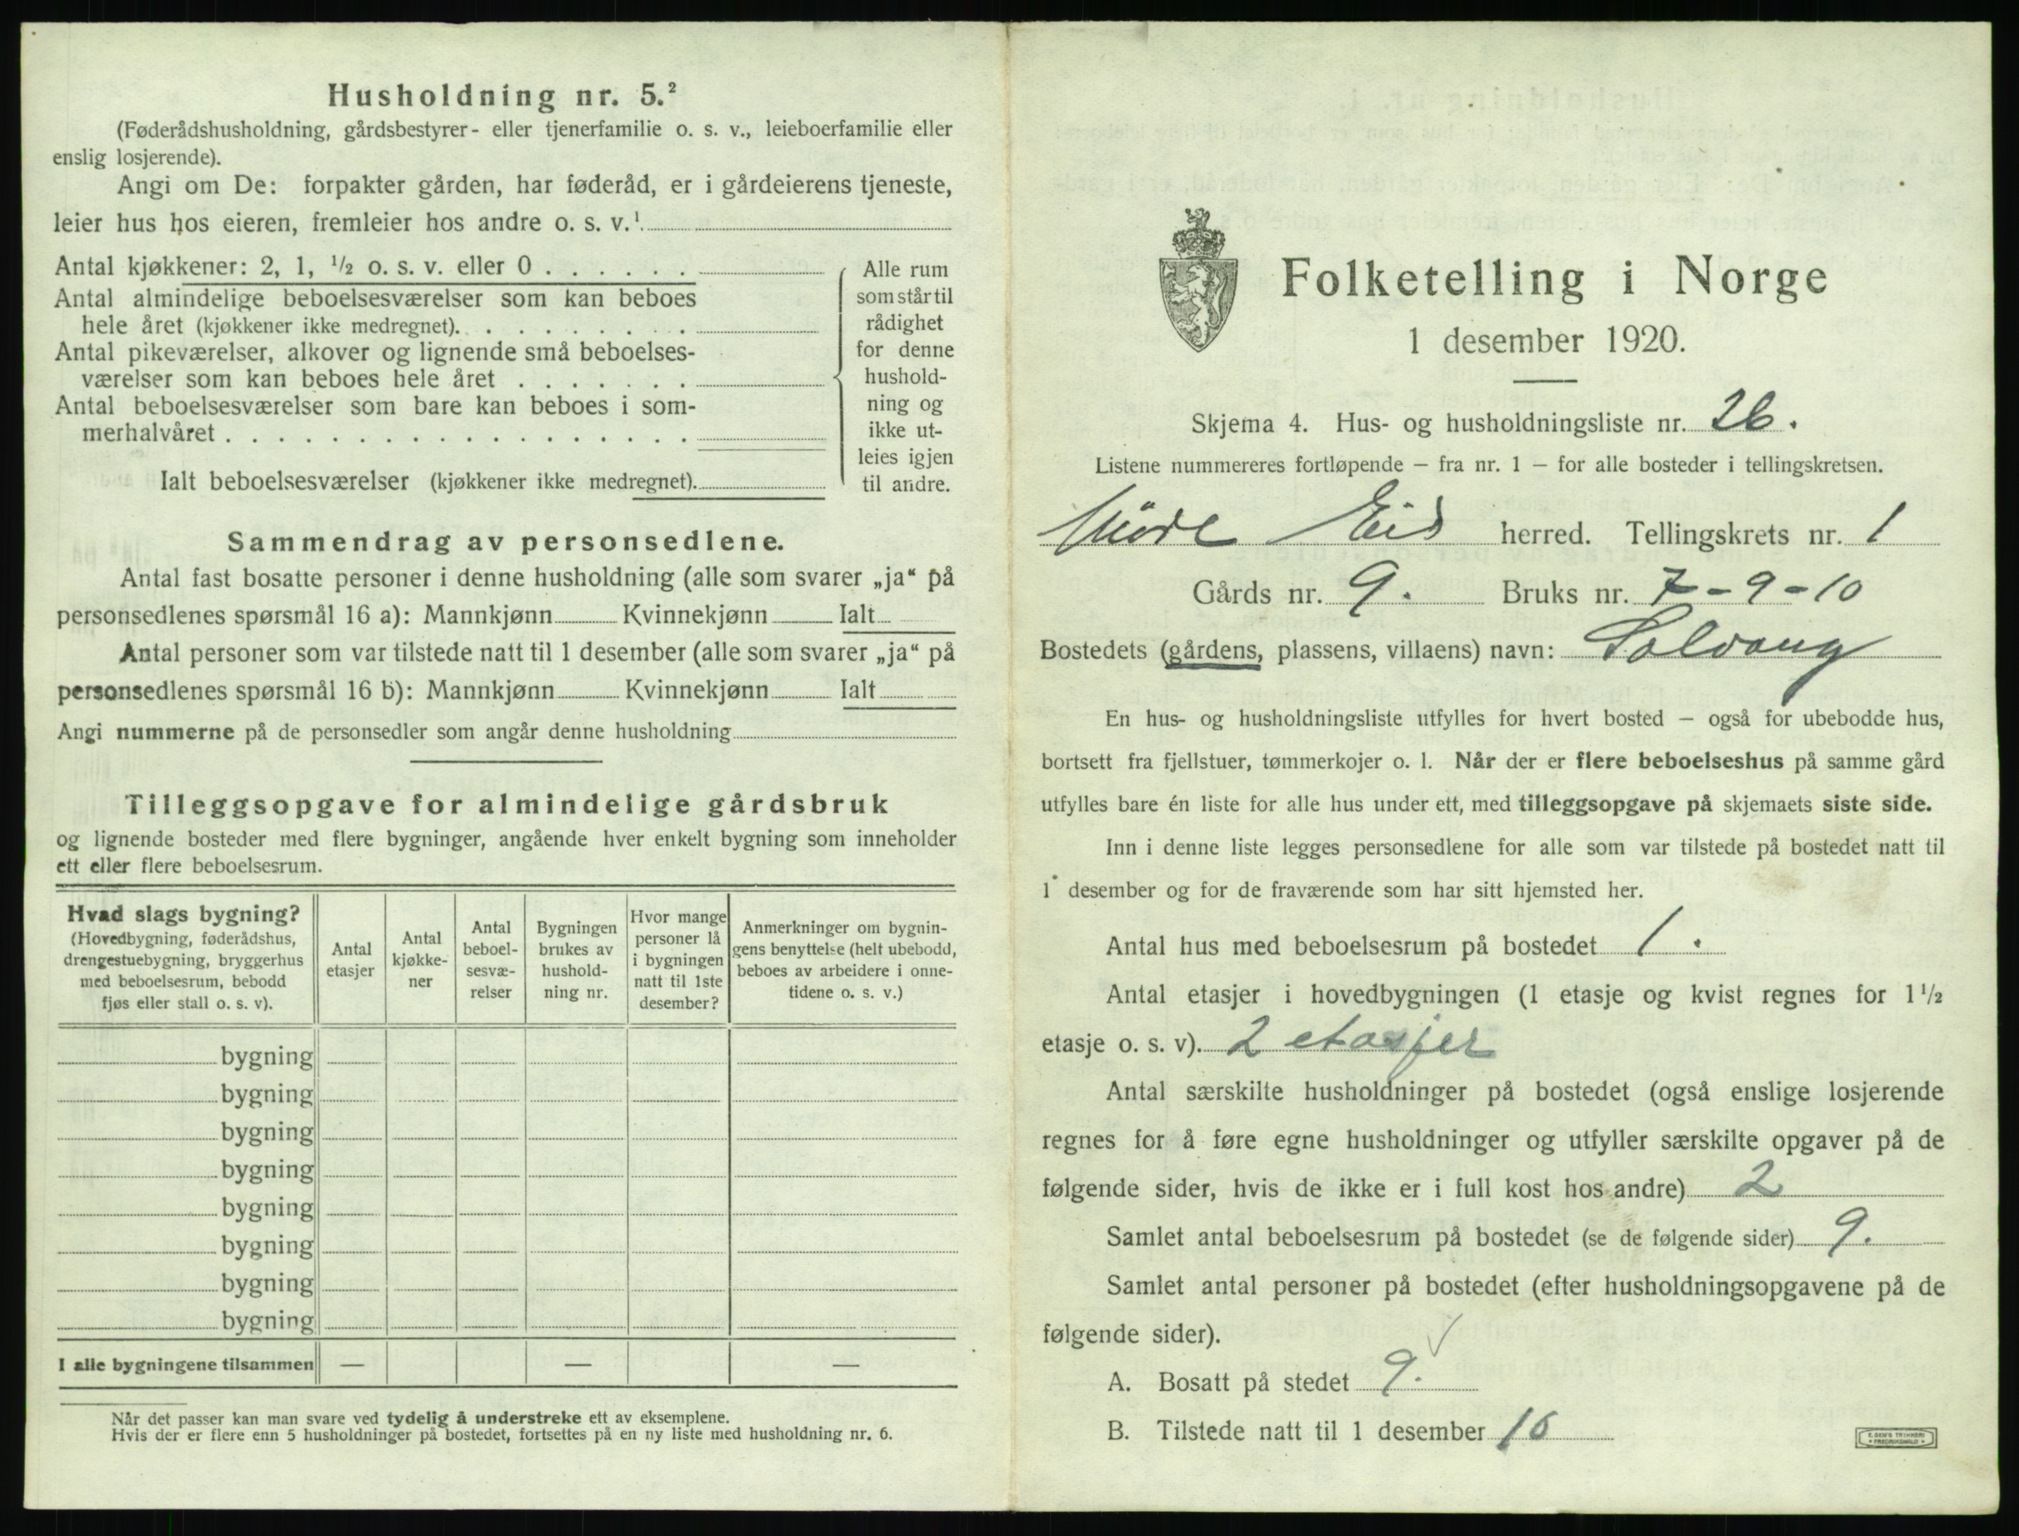 Husholdning nr. 5.²
(Føderådshusholdning, gårdsbestyrer- eller tjenerfamilie o. s. v., leieboerfamilie eller
enslig losjerende).
Angi om De: forpakter gården, har føderåd, er i gårdeierens tjeneste,
leier hus hos eieren, fremleier hos andre o. s. v.¹
Antal kjøkkener: 2, 1, ½ o. s. v. eller 0 . . . . . .
Antal almindelige beboelsesværelser som kan beboes
hele året (kjøkkener ikke medregnet). . . . . . . . .
Antal pikeværelser, alkover og lignende små beboelses-
værelser som kan beboes hele året . . . . . . .
Antal beboelsesværelser som bare kan beboes i som-
merhalvåret . . . . . . . . . . . . . . . . . .
Ialt beboelsesværelser (kjøkkener ikke medregnet).
Alle rum
som står til
rådighet
for denne
hushold-
ning og
ikke ut-
leies igjen
til andre.
Sammendrag av personsedlene.
Antal fast bosatte personer i denne husholdning (alle som svarer „ja“ på
personsedlenes spørsmål 16 a): Mannkjønn Kvinnekjønn Ialt
Antal personer som var tilstede natt til 1 desember (alle som svarer „ja“ på
personsedlenes spørsmål 16 b): Mannkjønn Kvinnekjønn Ialt
Angi nummerne på de personsedler som angår denne husholdning
Tilleggsopgave for almindelige gårdsbruk
og lignende bosteder med flere bygninger, angående hver enkelt bygning som inneholder
ett eller flere beboelsesrum.
Hvad slags bygning?
(Hovedbygning, føderådshus,
drengestuebygning, bryggerhus
med beboelsesrum, bebodd
fjøs eller stall o. s. v).
Antal
etasjer
Antal
kjøkke-
ner
Antal
beboel-
sesvæ-
relser
Bygningen
brukes av
hushold-
ning nr.
Hvor mange
personer lå
i bygningen
natt til 1ste
desember?
Anmerkninger om bygnin-
gens benyttelse (helt ubebodd,
beboes av arbeidere i onne-
tidene o. s. v.)
bygning
bygning
bygning
bygning
bygning
bygning
bygning
bygning
I alle bygningene tilsammen — — —
Når det passer kan man svare ved tydelig å understreke ett av eksemplene.
Hvis der er flere enn 5 husholdninger på bostedet, fortsettes på en ny liste med husholdning nr. 6.
Folketelling i Norge
1 desember 1920.
Skjema 4. Hus- og husholdningsliste nr. 26.
Listene nummereres fortløpende – fra nr. 1 – for alle bosteder i tellingskretsen.
Møre Eid herred. Tellingskrets nr. 1
Gårds nr. 9. Bruks nr. 7-9-10
Bostedets (gårdens, plassens, villaens) navn: Solvang
En hus- og husholdningsliste utfylles for hvert bosted – også for ubebodde hus,
bortsett fra fjellstuer, tømmerkojer o. l. Når der er flere beboelseshus på samme gård
utfylles bare én liste for alle hus under ett, med tilleggsopgave på skjemaets siste side.
Inn i denne liste legges personsedlene for alle som var tilstede på bostedet natt til
1 desember og for de fraværende som har sitt hjemsted her.
Antal hus med beboelsesrum på bostedet 1.
Antal etasjer i hovedbygningen (1 etasje og kvist regnes for 1½
etasje o. s. v). 2 etasjer
Antal særskilte husholdninger på bostedet (også enslige losjerende
regnes for å føre egne husholdninger og utfyller særskilte opgaver på de
følgende sider, hvis de ikke er i full kost hos andre) 2
Samlet antal beboelsesrum på bostedet (se de følgende sider) 9.
Samlet antal personer på bostedet (efter husholdningsopgavene på de
følgende sider).
A. Bosatt på stedet 9.
B. Tilstede natt til 1 desember 10